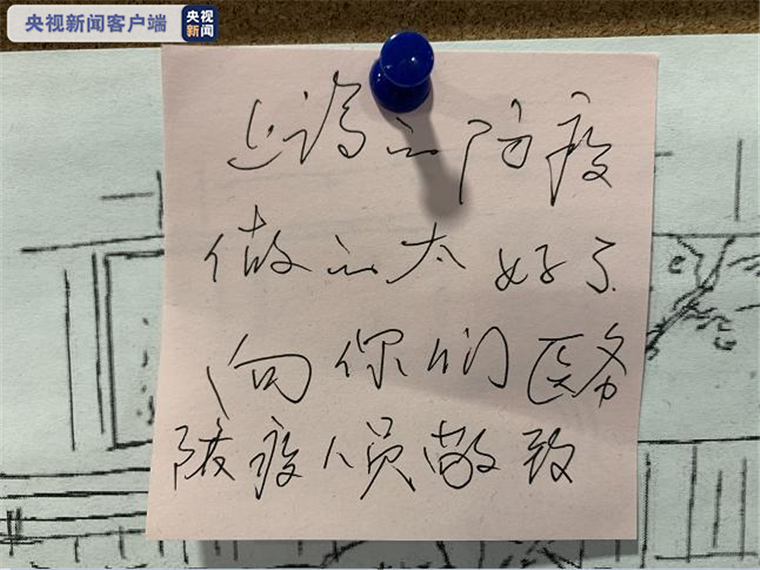 央视新闻客户端
央视新闻
上海的防疫
做的太好了
向你们医务
防疫人员敬致